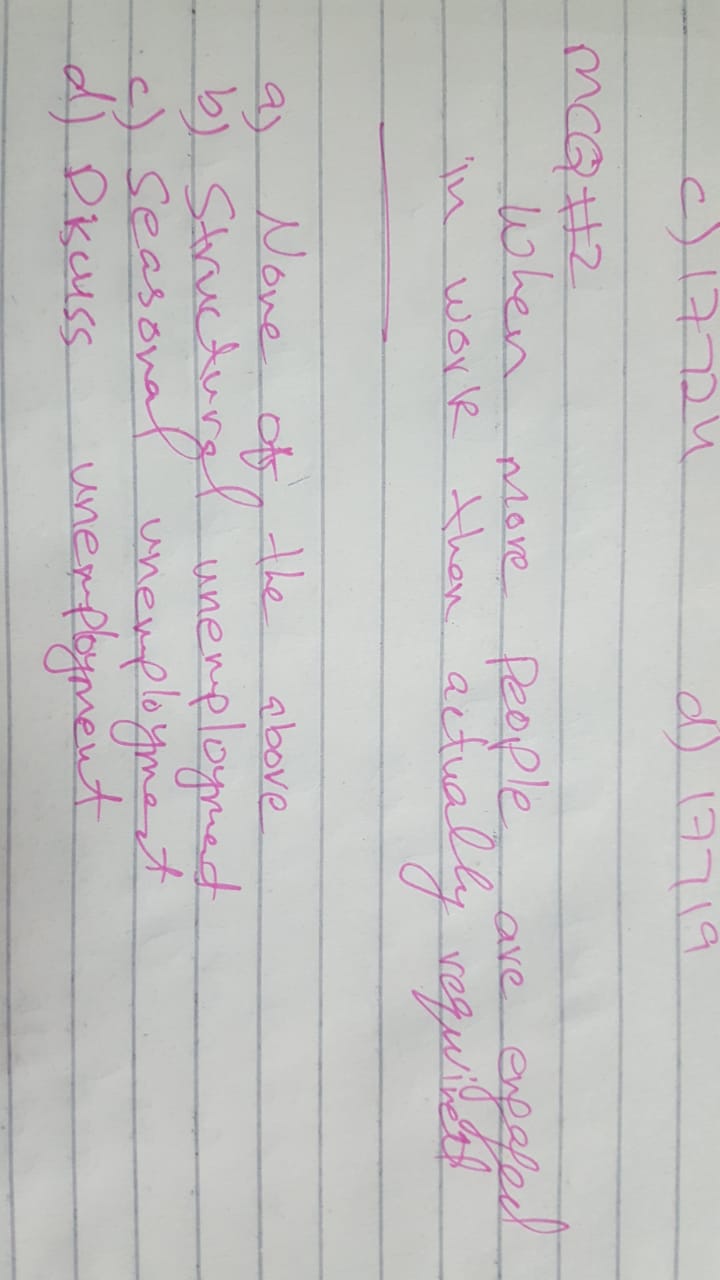 c) 17724 d) 17719
MCQ #2
When more people are engaged
in work then actually required
a) None of the above
b) Structural unemployment
c) Seasonal unemployment
d) Discuss unemployment